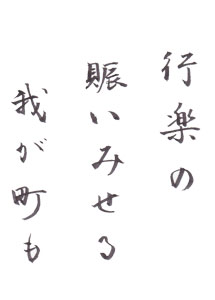 行楽の
賑いみせる
我が町も